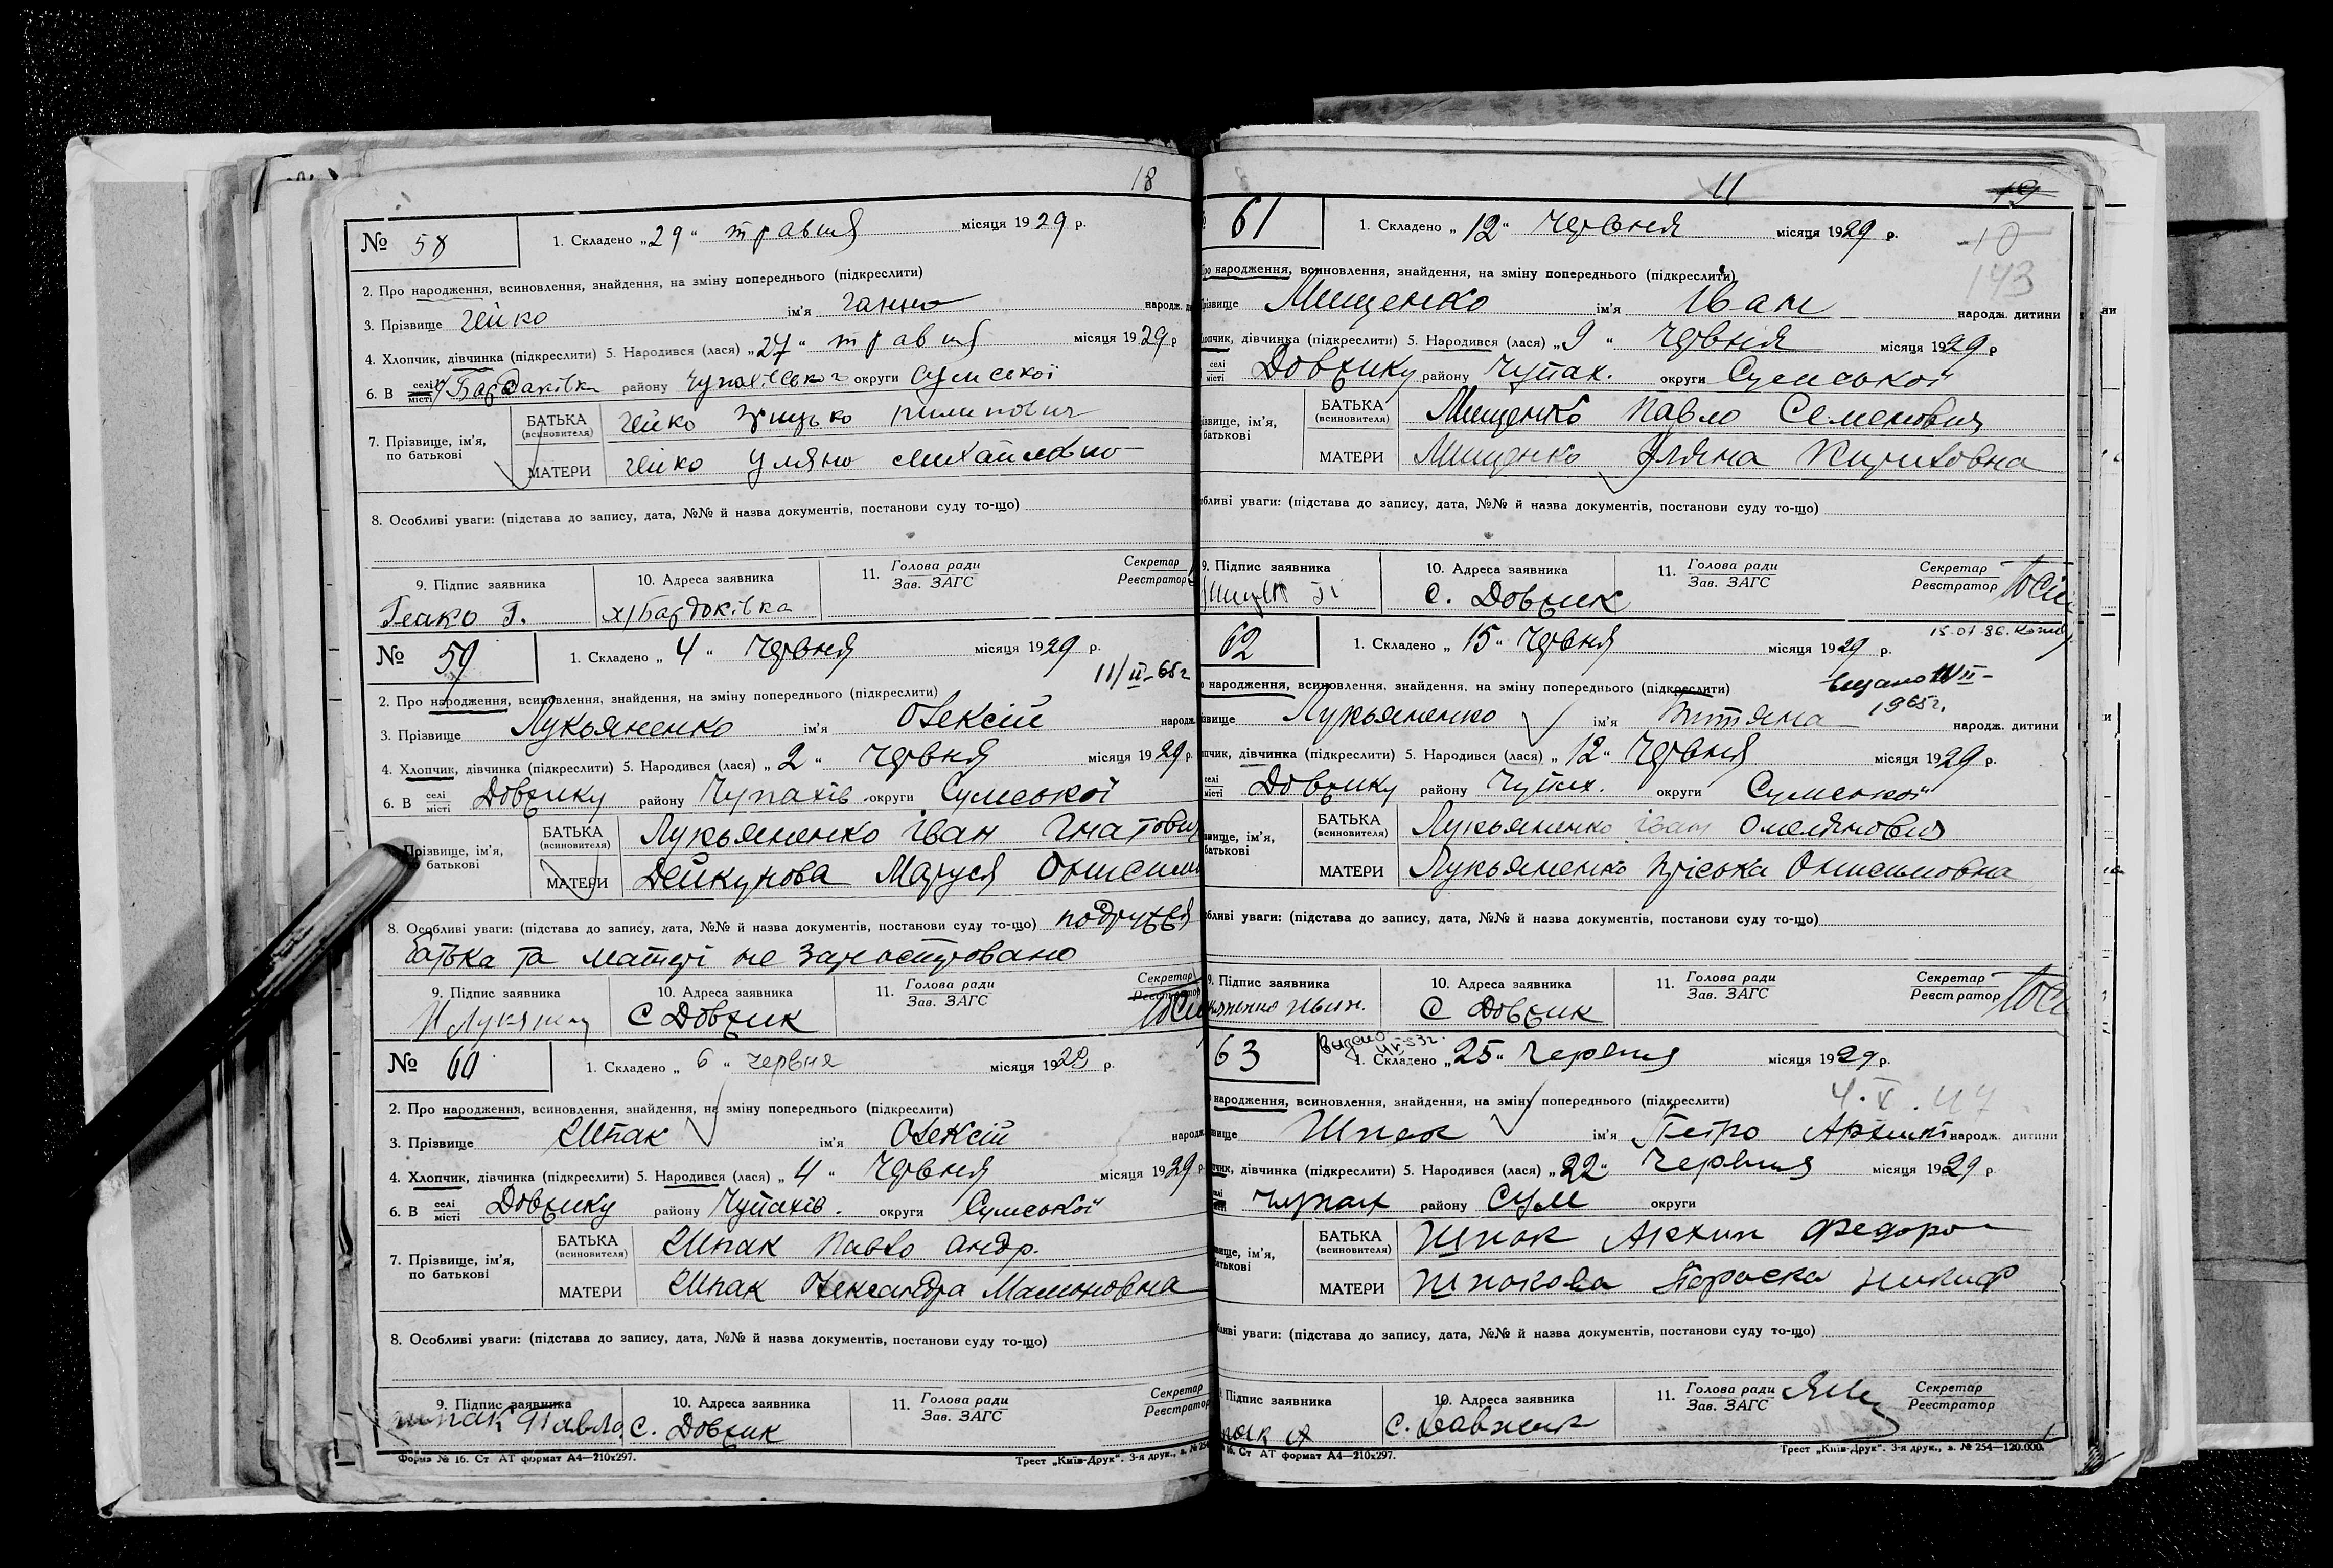 18
№ 58
1. Складено „29“ травня місяця 1929 р.
2. Про народження, всиновлення, знайдення, на зміну попереднього (підкреслити)
3. Прізвище Гейко ім'я Ганна народж.
4. Хлопчик, дівчинка (підкреслити) 5. Народився (лася) „27“ травня місяця 1929 р
6. В селі місті х/Бардаківка району Чупахівського округи Сумської
7. Прізвище, ім'я, по батькові
БАТЬКА (всиновителя) Гейко Грицько Пилипович
МАТЕРИ Гейко Уляна Михайловна
8. Особливі уваги: (підстава до запису, дата, №№ й назва документів, постанови суду то-що)
9. Підпис заявника
10. Адреса заявника х/Бардаківка
11. Голова ради Зав. ЗАГС
Секретар Реєстратор
№ 59
1. Складено „4“ Червня місяця 1929 р.
11/II-65г
2. Про народження, всиновлення, знайдення, на зміну попереднього (підкреслити)
3. Прізвище Лукьяненко ім'я Олексій народж.
4. Хлопчик, дівчинка (підкреслити) 5. Народився (лася) „2“ Червня місяця 1929 р.
6. В селі місті Довжику району Чупахів. округи Сумської
Прізвище, ім'я, по батькові
БАТЬКА (всиновителя) Лукьяненко Іван Гнатови
МАТЕРИ Дейкунова Маруся Онисим
8. Особливі уваги: (підстава до запису, дата, №№ й назва документів, постанови суду то-що) подружжя
батька та матері не зареєстровано
9. Підпис заявника
10. Адреса заявника С Довжик
11. Голова ради Зав. ЗАГС
Секретар Реєстратор
№ 60
1. Складено „6“ червня місяця 1929 р.
2. Про народження, всиновлення, знайдення, на зміну попереднього (підкреслити)
3. Прізвище Шпак ім'я Олексій народж.
4. Хлопчик, дівчинка (підкреслити) 5. Народився (лася) „4“ Червня місяця 1929 р.
6. В селі місті Довжику району Чупахів. округи Сумської
7. Прізвище, ім'я, по батькові
БАТЬКА (всиновителя) Шпак Павло Андр.
МАТЕРИ Шпак Олександра Мамоновна
8. Особливі уваги: (підстава до запису, дата, №№ й назва документів, постанови суду то-що)
9. Підпис заявника Шпак Павло
10. Адреса заявника С. Довжик
11. Голова ради Зав. ЗАГС
Секретар Реєстратор
Форма № 16. Ст АТ формат А4—210х297.
Трест „Київ-Друк“. 3-я друк., з. № 254
11
19
10
143
61
1. Складено „12“ Червня місяця 1929 р.
народження, всиновлення, знайдення, на зміну попереднього (підкреслити)
Мищенко ім'я Іван народж. дитини
дівчинка (підкреслити) 5. Народився (лася) „9“ Червня місяця 1929 р
селі місті Довжику району Чупах. округи Сумської
БАТЬКА (всиновителя) Мищенко Павло Семенович
МАТЕРИ Мищенко Уляна Кириловна
уваги: (підстава до запису, дата, №№ й назва документів, постанови суду то-що)
9. Підпис заявника
10. Адреса заявника С. Довжик
11. Голова ради Зав. ЗАГС
Секретар Реєстратор
62
1. Складено „15“ Червня місяця 1929 р.
15.01.86.
народження, всиновлення, знайдення, на зміну попереднього (підкреслити)
1965г.
Лукьяненко ім'я Титяна народж. дитини
дівчинка (підкреслити) 5. Народився (лася) „12“ Червня місяця 1929 р.
селі місті Довжику району Чупах. округи Сумської
БАТЬКА (всиновителя) Лукьяненко Іван Омелянович
МАТЕРИ Лукьяненко Пріська Онисимовна
уваги: (підстава до запису, дата, №№ й назва документів, постанови суду то-що)
9. Підпис заявника
10. Адреса заявника С Довжик
11. Голова ради Зав. ЗАГС
Секретар Реєстратор
63
Выдано
1. Складено „25“ Червня місяця 1929 р.
народження, всиновлення, знайдення, на зміну попереднього (підкреслити)
4.X.47
Шпак ім'я Петро народж. дитини
дівчинка (підкреслити) 5. Народився (лася) „22“ Червня місяця 1929 р.
Чупах району Сум округи
БАТЬКА (всиновителя) Шпак Архип Федоро
МАТЕРИ Шпакова Параска Никиф
уваги: (підстава до запису, дата, №№ й назва документів, постанови суду то-що)
Підпис заявника
10. Адреса заявника С. Довжик
11. Голова ради Зав. ЗАГС
Секретар Реєстратор
16. Ст АТ формат А4—210х297.
Трест „Київ-Друк“. 3-я друк., з. № 254—120.000.